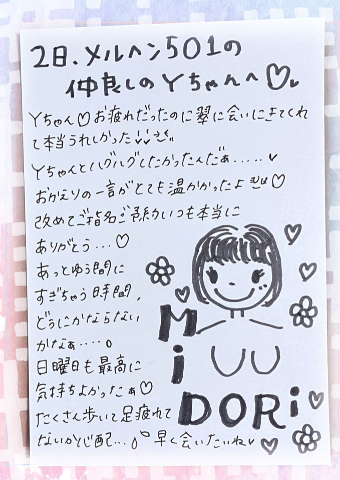 2日.メルヘン501の
仲良しのYちゃんへ♡
Yちゃん♡お疲れだったのに翠に会いにきてくれ
て本当うれしかった
Yちゃんとハグハグしたかったんだぁ.....
おかえりの一言がとても温かかったよ♡
改めてご指名ご予約いつも本当に
ありがとう...♡
あっとゆう間に
すぎちゃう時間,
どうにかならない
かなぁ....。
日曜日も最高に
気持ちよかったぁ♡
たくさん歩いて足疲れて
ないか心配...早く会いたいね
MiDORi